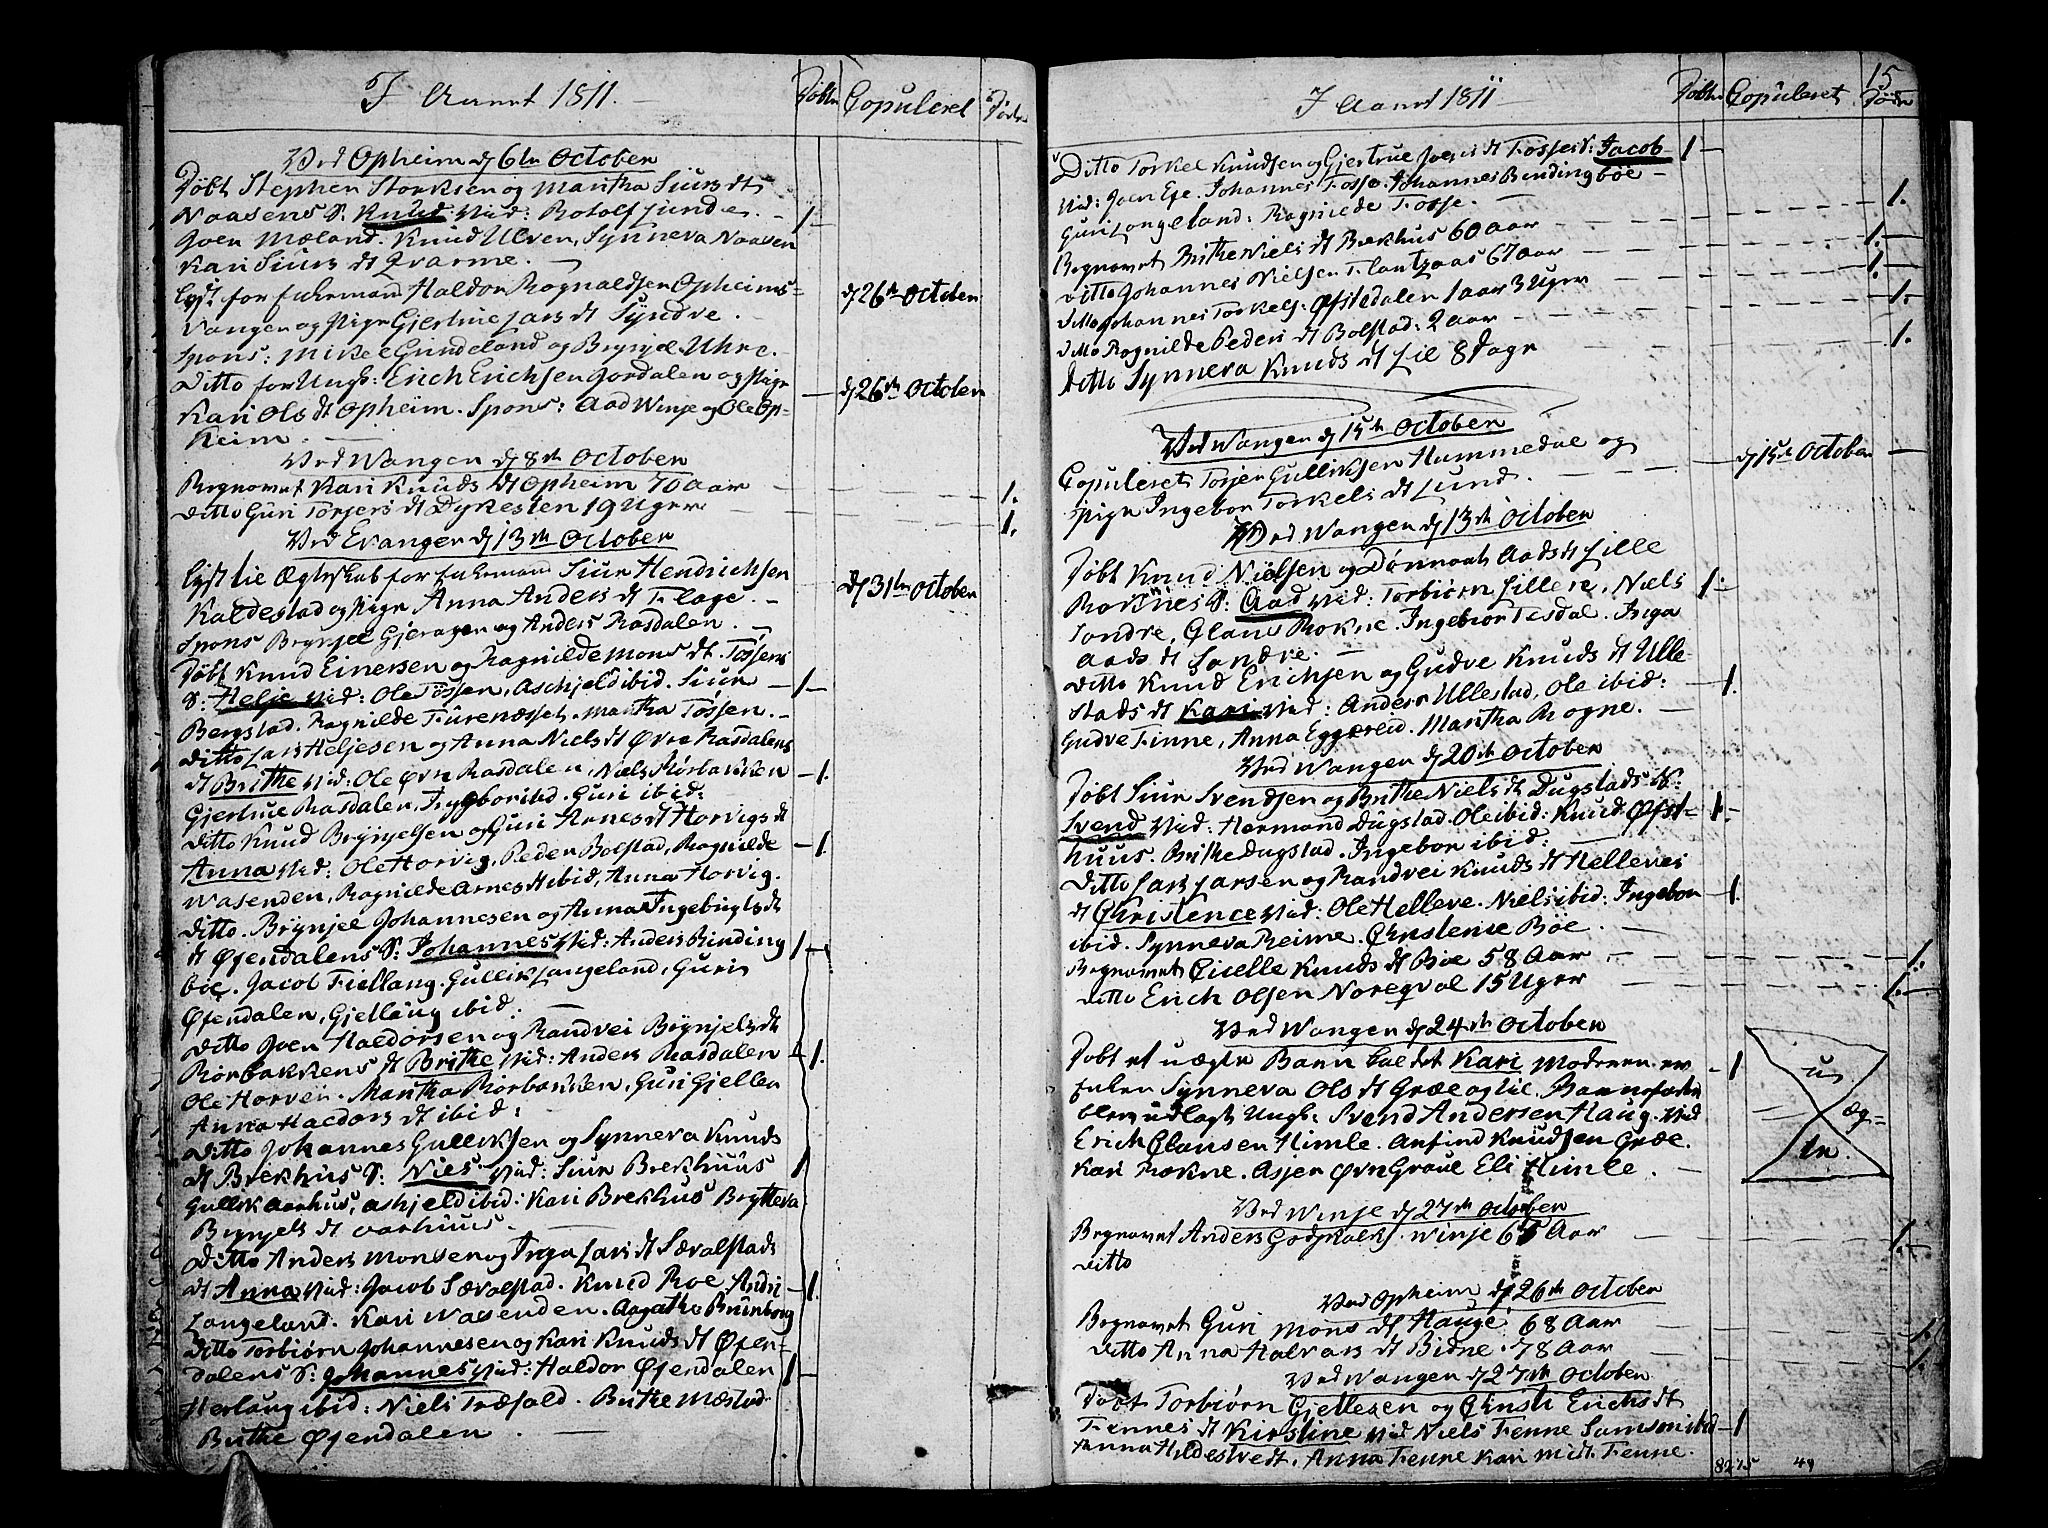 I Aaret 1811.
Döbte
Copuleret
Döde
Ved Opheim d 6te October
Döbt Stephen Storksen og Martha Siurs dt
Naasens S: Knud Vid: Rotolf Junde. 1
Joen Mæland. Knud Ulven, Synneva Naasen
Kari Siurs dt Qvarme.
Lyst for Enkemand Haldor Rognaldsen Opheims= d 26de October
Vangen og Pige Gjertrue Lars dt Syndve.
Spons: Mikel Grindeland og Brynjel Uhre.
Ditto for Ungk: Erich Erichsen Jordalen og Pige d 26de October
Kari Ols dt Opheim. Spons: Aad Winje og Ole Op-
heim.
Ved Wangen d 8de October
Begravet Kari Knuds dt Opheim 70 aar 1.
Ditto Guri Torjers dt Dykesten 19 Uger 1.
Ved Evanger d 13de October
Lyst til Ægteskab for Enkemand Siur Hendrichsen
Kaldestad og Pige Anna Anders dt Flage. d 31te October
Spons Brynjel Gjeragen og Anders Rasdalen.
Döbt Knud Einersen og Ragnilde Mons dt. Tössens
S: Helje Vid: Ole Tössen, Aschjeld ibid. Siur 1
Bergstad. Ragnilde Furenæsset. Martha Tössen.
Ditto Lars Heljesen og Anna Niels dt Øvre Rasdalens
dt Brithe Vid: Ole Øvre Rasdalen, Niels Rörbakken 1.
Gjertrue Rasdalen, Ingebor ibid. Guri ibid:
Ditto Knud Brynjelsen og Guri Arnes dt Horvigs dt
Anna Vid: Ole Horvig, Peder Bolstad, Ragnilde 1.
Wasenden, Ragnilde Arnes dt ibid, Anna Horvig.
Ditto. Brynjel Johannesen og Anna Ingebrigts dt
dt Øjendalens S: Johannes Vid: Anders Binding 1
böe. Jacob Fiellang. Gullik Langeland, Guri
Øjendalen, Gjellaug ibid:
Ditto Joen Haldorsen og Randvei Brynjels dt
Rörbakkens dt Brithe Vid: Anders Rasdalen 1.
Ole Horven. Martha Rörbakken, Guri Gjellen
Anna Haldors dt ibid:
Ditto Johannes Gulliksen og Synneva Knuds
dt Brekhus S: Niels Vid: Siur Brekhuus 1
Gullik Aarhus, Askjeld ibid: Kari Brekhus Brytteva
Brynjels dt Aarhuus.
Ditto Anders Monsen og Inga Lars dt Sævalstads
dt Anna Vid: Jacob Sævalstad. Knud Roe Andri 1.
Langeland. Kari Wasenden. Aagathe Brunborg
Ditto Torbiörn Johannesen og Kari Knuds dt Øjen-
dalens S: Johannes Vid: Haldor Øjendalen 1
Herlaug ibid: Niels Træfald. Brithe Mæstad
Brithe Øjendalen.
15
I Aaret 1811
Döbte
Copuleret
Döde
Ditto Torkel Knudsen og Gjertrue Joens dt Fosses S: Jacob 1
Vid: Joen Eje. Johannes Fosse. Johannes Bindingböe
Guri Langeland: Ragnilde Fosse. 1.
Begravet Brithe Niels dt Brekhus 60 aar 1.
Ditto Johannes Nielsen Flantzaas 67 aar 1.
Ditto Johannes Torkels: Øfstedalen 1 aar 3 Uger 1.
Ditto Ragnilde Peders dt Bolstad: 2 aar
Ditto Synneva Knuds dt Lie 8 Dage 1.
Ved Wangen d 15de October
Copuleret Torjer Gulliksen Hummedal og d 15de October
Pige Ingebor Torkels dt Lund.
Ved Wangen d 13de October
Döbt Knud Nielsen og Dönnaat Aads dt Lille
Roknes S: Aad Vid: Torbiörn Lille R, Niels 1.
Sondre, Glaus Rokne. Ingebior Tesdal. Inga
Aads dt Sondre.
Ditto Knud Erichsen og Gudve Knuds dt Ulle
Stads dt Kari Vid: Anders Ullestad, Ole ibid: 1.
Gudve Finne, Anna Eggereid. Martha Rogne.
Ved Wangen d 20de October
Döbt Siur Svendsen og Brithe Niels dt Dugstads S:
Svend Vid: Hermand Dugstad. Ole ibid: Knud Øfst- 1.
huus. Brithe Dugstad. Ingebor ibid:
Ditto Lars Larsen og Randvei Knuds dt Helleves
dt Christence Vid: Ole Helleve. Niels ibid: Ingebor 1.
ibid. Synneva Reime. Christense Böe.
Begravet Giselle Knuds dt Böe 58 Aar 1.
Ditto Erich Olsen Noreqval 15 Uger 1.
Ved Wangen d 24de October
Döbt et uægte Barn kaldet Kari Moderen er 1
Enken Synneva Ols dt Græe og til Barnefader
blev udlagt Ungk: Svend Andersen Haug. Vid
Erich Clausen Himle. Arfind Knudsen Græe.
Kari Rokne. Asjer Øvre Graue Eli Himle.
u
æg-
te.
Ved Winje d 27de October
Begravet Anders Godskalks. Winje 65 Aar 1.
Ditto
Ved Opheim d 26de October
Begravet Guri Mons dt Hauge 68 Aar 1.
Ditto Anna Halvars dt Bidne. 78 Aar 1.
Ved Wangen d 27de October
Döbt Torbiörn Gjellesen og Christi Erichs dt
Fennes dt Kirstine Vid Niels Fenne Samson ibid 1
Anna Hildestvedt. Anna Fenne Kari midt Fenne.
8275 49